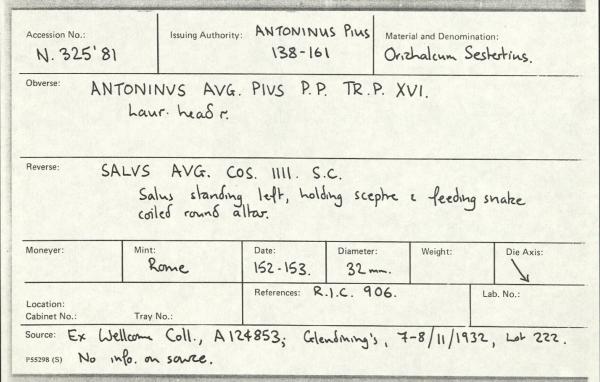 Accession No.: N. 325'81 Issuing Authority: ANTONINUS PIUS 138-161 Material and Denomination: Orichalcum Sestertius.
Obverse: ANTONINVS AVG. PIVS P.P. TR.P. XVI.
Laur. head r.
Reverse: SALVS AVG. COS. IIII. S.C.
Salus standing left, holding sceptre & feeding snake
coiled round altar.
Moneyer: Mint: Rome Date: 152-153. Diameter: 32 mm. Weight: Die Axis:
References: R.I.C. 906. Lab. No.:
Location:
Cabinet No.: Tray No.:
Source: Ex Wellcome Coll., A124853; Glendining's, 7-8/11/1932, Lot 222.
P55298 (S) No info. on source.